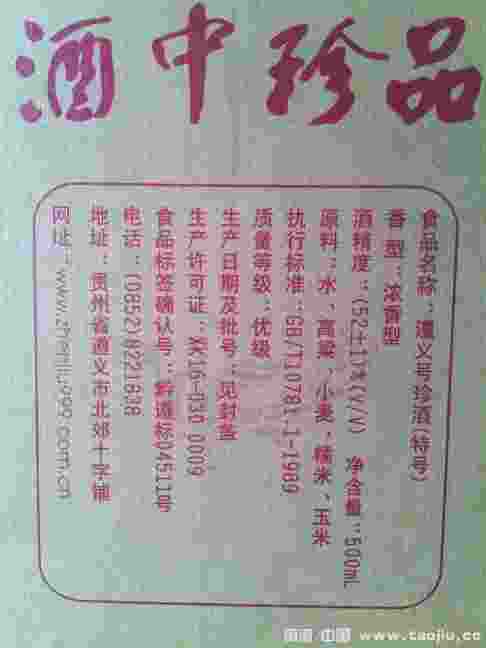 酒中珍品
食品名称：遵义号珍酒(特号)
香 型：浓香型
酒精度：(52±1)%(V/V) 净含量：500mL
原料：水、高粱、小麦、糯米、玉米
执行标准：GB/T10781.1-1989
质量等级：优级
生产日期及批号：见封盖
生产许可证：XK16-030 0009
食品标签确认号：黔遵标04511号
电话：(0852)8221838
地址：贵州省遵义市北郊十字铺
网址：www.zhenjiu999.com.cn
中国 www.caojiu.cc